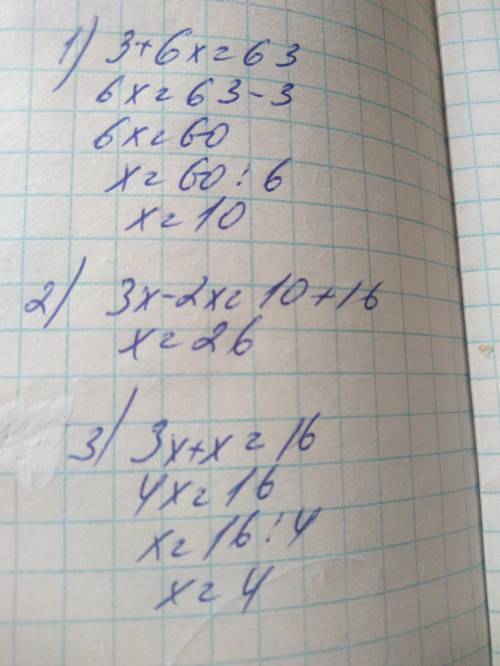 1) 3+6x=63
6x=63-3
6x=60
x=60:6
x=10
2) 3x-2x=10+16
x=26
3) 3x+x=16
4x=16
x=16:4
x=4